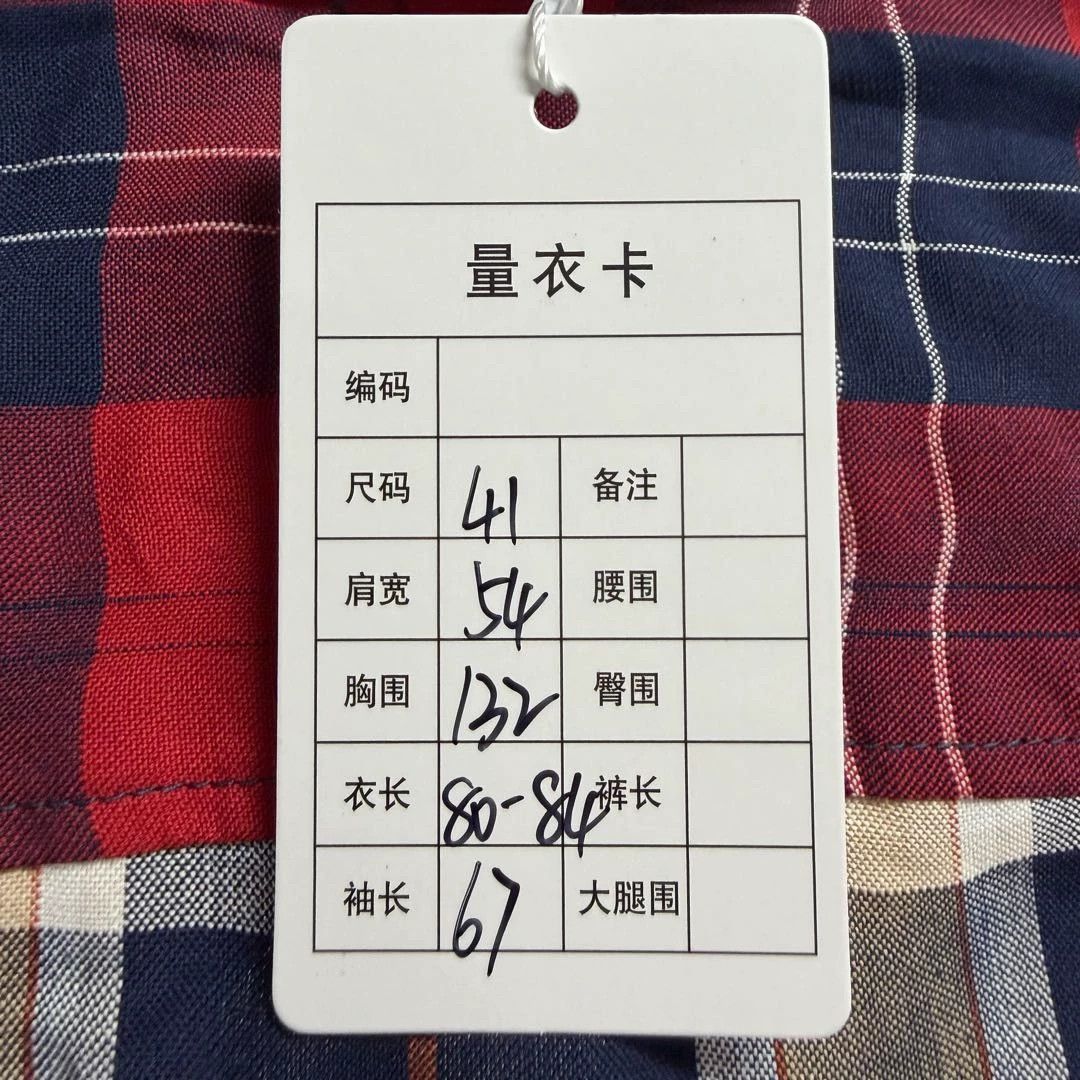 量衣卡
编码
尺码 41 备注
肩宽 54 腰围
胸围 132 臀围
衣长 80-84 裤长
袖长 67 大腿围